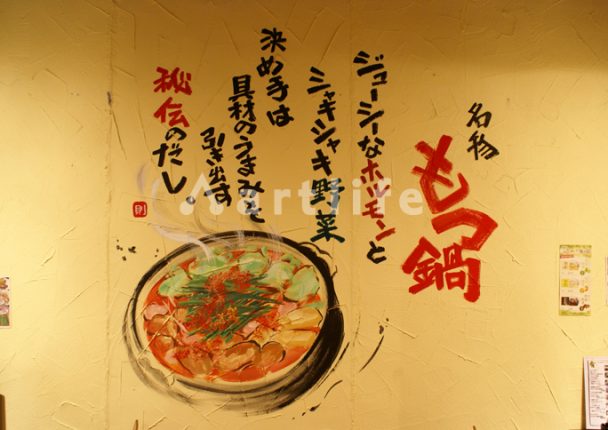 名物
もつ鍋
ジューシーなホルモンと
シャキシャキ野菜
決め手は
具材のうまみを
引き出す
秘伝のだし。
則
Martlife